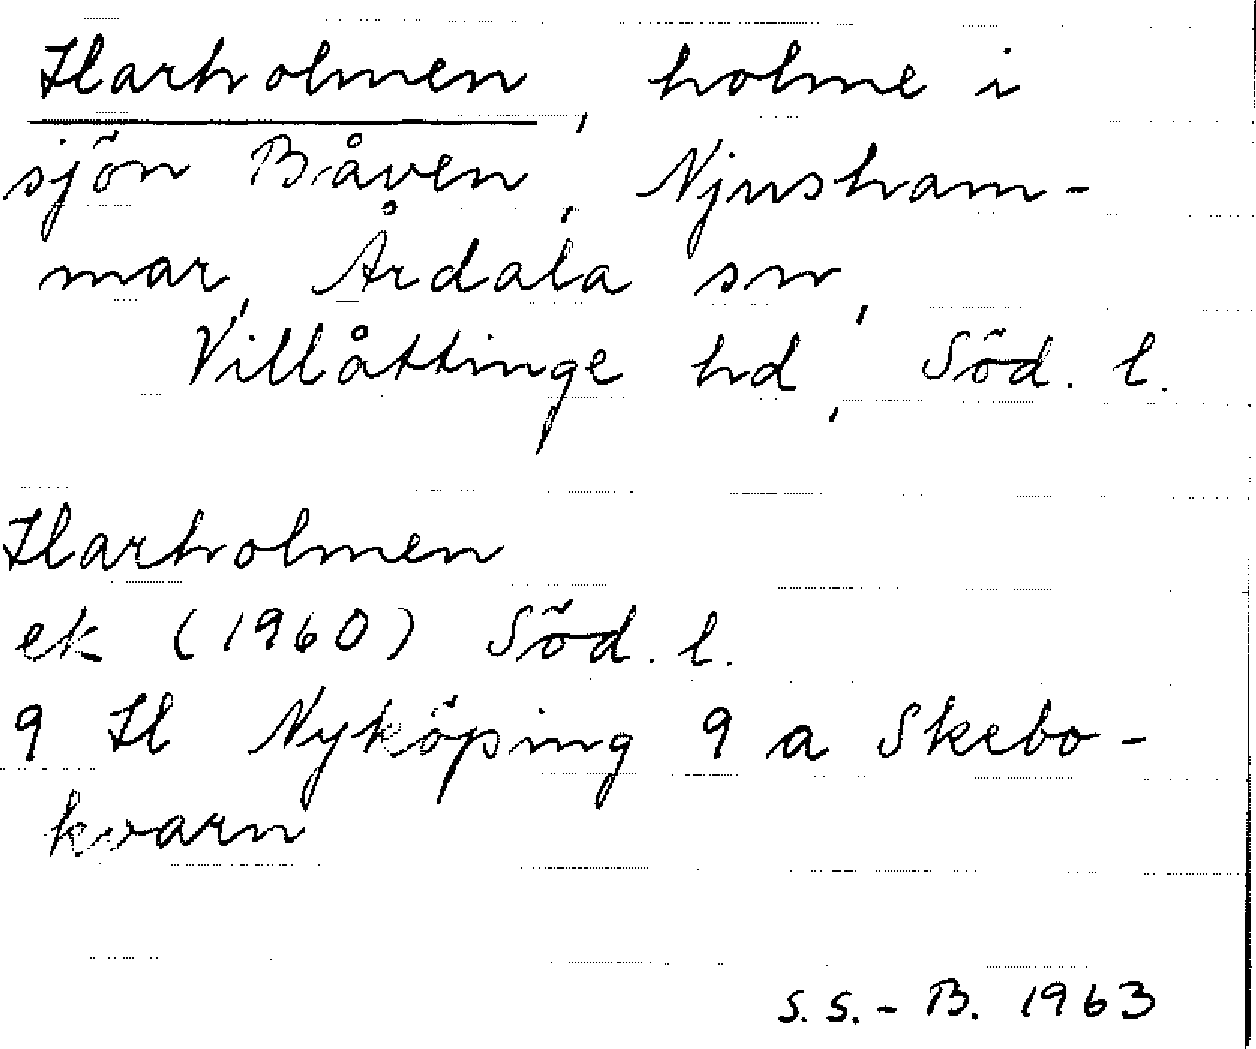 Harholmen, holme i
sjön Båven, Njusham-
mar, Årdala sn,
Villåttinge hd, Söd. l.
Harholmen
ek (1960) Söd. l.
9 H Nyköping 9 a Skebo-
kvarn
S. S. - B. 1963